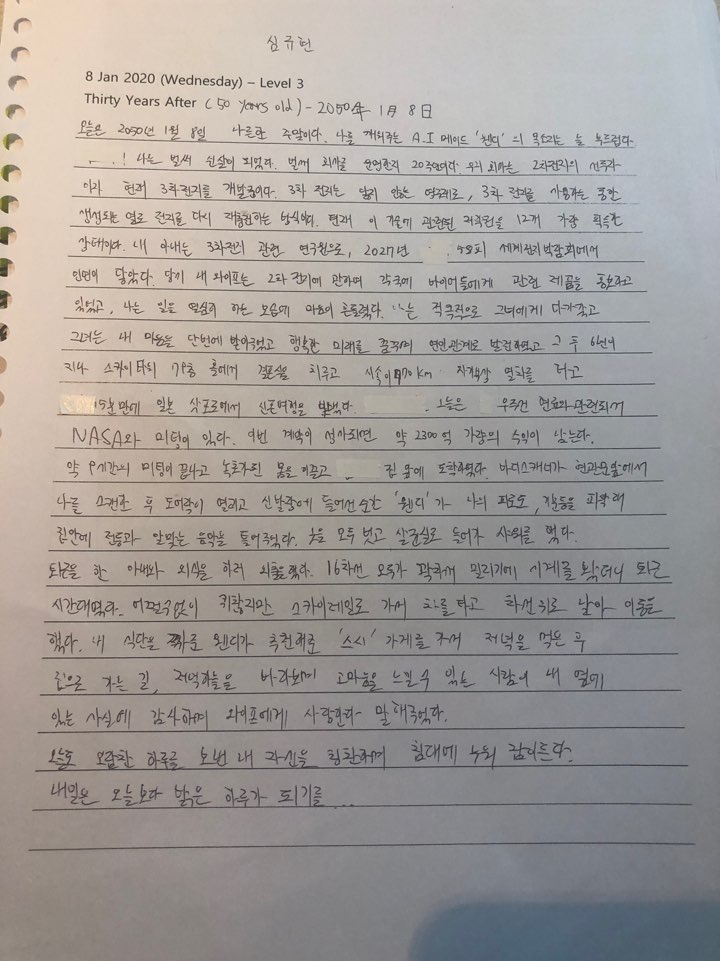 심규현
8 Jan 2020 (Wednesday) – Level 3
Thirty Years After (50 years old) - 2050年 1月 8日
오늘은 2050년 1월 8일 나른한 주말이다. 나를 깨워주는 A.I 메이드 '웬디'의 목소리는 늘 부드럽다.
! 나는 벌써 쉰살이 되었다. 벌써 회사를 운영한지 20주년이다. 우리 회사는 2차전지의 선두주자
이자 현재 3차전지를 개발중이다. 3차 전지는 닳지 않는 영구재로, 3차 전지를 사용하는 동안
생성되는 열로 전지를 다시 재충전하는 방식이다. 현재 이 기술에 관련된 저작권을 12개 가량 획득한
상태이다. 내 아내는 3차전지 관련 연구원으로, 2027년 세계전지박람회에서
인연이 닿았다. 당시 내 와이프는 2차 전지에 관하여 각국에 바이어들에게 관련 제품을 홍보하고
있었고, 나는 일을 열심히 하는 모습에 마음이 흔들렸다. 나는 적극적으로 그녀에게 다가갔고
그녀는 내 마음을 단번에 받아주었고 행복한 미래를 꿈꾸며 연인관계로 발전하였고 그 후 6년이
지나 스카이타워 79층 홀에서 결혼식을 치루고 시속 km 자기부상 열차를 타고
15분만에 일본 삿포로에서 신혼여정을 보냈다. 오늘은 우주선 연료와 관련되어
NASA와 미팅이 있다. 이번 계약이 성사되면 약 2300억 가량의 수익이 남는다.
약 9시간의 미팅이 끝나고 녹초가된 몸을 이끌고 집 앞에 도착하였다. 바디스캐너가 현관문앞에서
나를 스캔한 후 도어락이 열리고 신발장에 들어선 순간 '웬디'가 나의 피로도, 기분등을 파악해
집안에 전등과 알맞는 음악을 틀어주었다. 옷을 모두 벗고 살균실로 들어가 샤워를 했다.
퇴근을 한 아내와 외식을 하러 외출했다. 16차선 도로가 꽉차서 밀리기에 시계를 봤더니 퇴근
시간대였다. 어쩔수없이 귀찮지만 스카이레일로 가서 차를 타고 차선위로 날아 이동을
했다. 내 식단을 짜온 웬디가 추천해준 '스시' 가게를 가서 저녁을 먹은 후
집으로 가는 길, 저녁하늘을 바라보며 고마움을 느낄수 있는 사람이 내 옆에
있는 사실에 감사하며 와이프에게 사랑한다 말해주었다.
오늘도 알찬 하루를 보낸 내 자신을 칭찬하며 침대에 누워 잠이든다.
내일은 오늘보다 밝은 하루가 되기를...